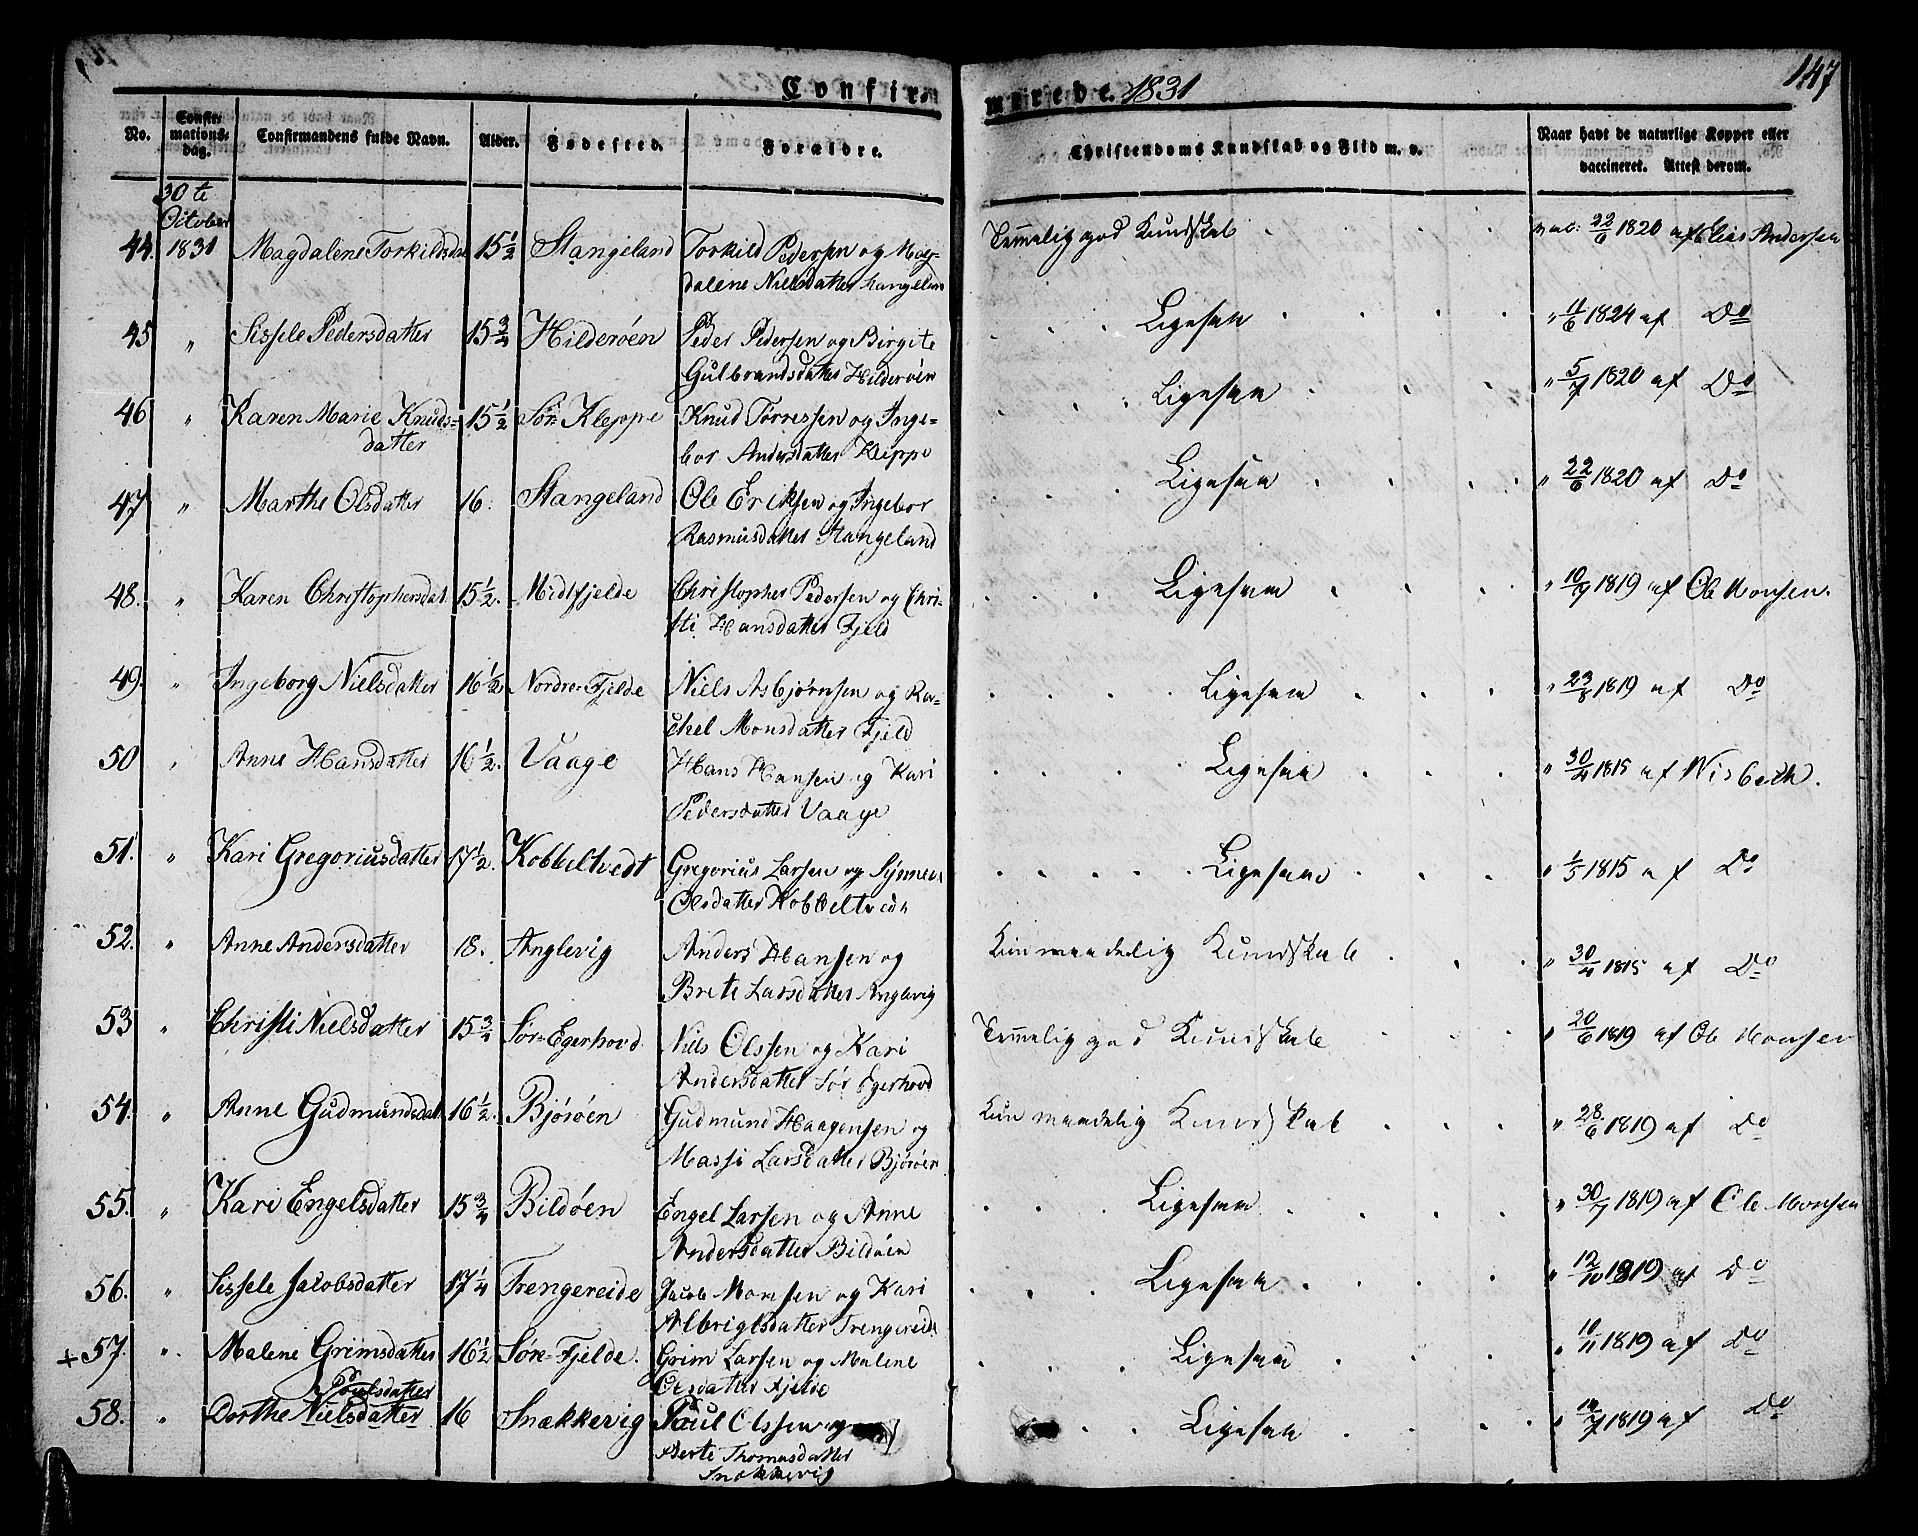 147
Confirmerede. 1831
No. Confirmations-dag. Confirmandens fulde Navn. Alder. Fødested. Forældre. Christendoms Kundskab og Flid m. v. Naar havt de naturlige Kopper eller vaccineret. Attest derom.
30te
October
44. 1831 Magdalene Torkildsdat 15 1/2 Stangeland Torkild Pedersen og Mag- Temmelig god Kundskab vac: 22/6 1820 af Elias Andersen
dalene Nielsdatter Stangeland
45 " Sissele Pedersdatter 15 3/4 Hilderöen Peder Pedersen og Birgite Ligesaa " 11/6 1824 af Do
Gulbrandsdatter Hilderöen
46 " Karen Marie Knuds- 15 1/2 Sör Kleppe Knud Torressen og Inge- Ligesaa " 5/7 1820 af Do
datter bor Andersdatter Kleppe
47 " Marthe Olsdatter 16 Stangeland Ole Eriksen og Ingebor Ligesaa " 22/6 1820 af Do
Rasmusdatter Stangeland
48. " Karen Christophersdat 15 1/2. Midtfjelde Christopher Pedersen og Chri- Ligesaa " 10/7 1819 af Ole Monsen.
sti Hansdatter Fjeld
49. " Ingeborg Nielsdatter 16 1/2 Nordre-Fjelde Niels Asbjørnsen og Ra- Ligesaa " 23/8 1819 af Do
chel Monsdatter Fjeld
50 " Anne Hansdatter 16 1/2. Vaage Hans Hansen og Kari Ligesaa " 30/4 1815 af Wisbech.
Pedersdatter Vaage
51. " Kari Gregoriusdatter 17 1/2. Kobbeltvedt Gregorius Larsen og Synneva Ligesaa " 1/5 1815 af Do
Olsdatter Kobbeltvedt
52. " Anne Andersdatter 18. Anglevig Anders Hansen og Kun maadelig Kundskab " 30/4 1815 af Do
Brete Larsdatter Anglevig
53 " Christi Nielsdatter 15 3/4 Sör-Egerhovd Niels Olssen og Kari Temmelig god Kundskab " 20/6 1819 af Ole Monsen
Andersdatter Sör Egerhovd
54. " Anne Gudmundsdat 16 1/2. Björöen Gudmund Haagensen og Kun maadelig Kundskab " 28/6 1819 af Do
Massi Larsdatter Björöen
55. " Kari Engelsdatter 15 3/4 Bildöen Engel Larsen og Anne Ligesaa " 30/7 1819 af Ole Monsen
Andersdatter Bildöen
56. " Sissele Jacobsdatter 17 1/4 Trengereide Jacob Monsen og Kari Ligesaa " 12/10 1819 af Do
Albrigtsdatter Trengereide
+57. " Malene Grimsdatter 16 1/2 Söre-Fjelde. Grim Larsen og Malene Ligesaa " 10/11 1819 af Do
Olsdatter Fjelde
Poulsdatter
58. " Dorthe Nielsdatter 16 Snækkevig Poul Olssen og Ligesaa " 14/7 1819 af Do
Berte Thomasdatter
Snækkevig